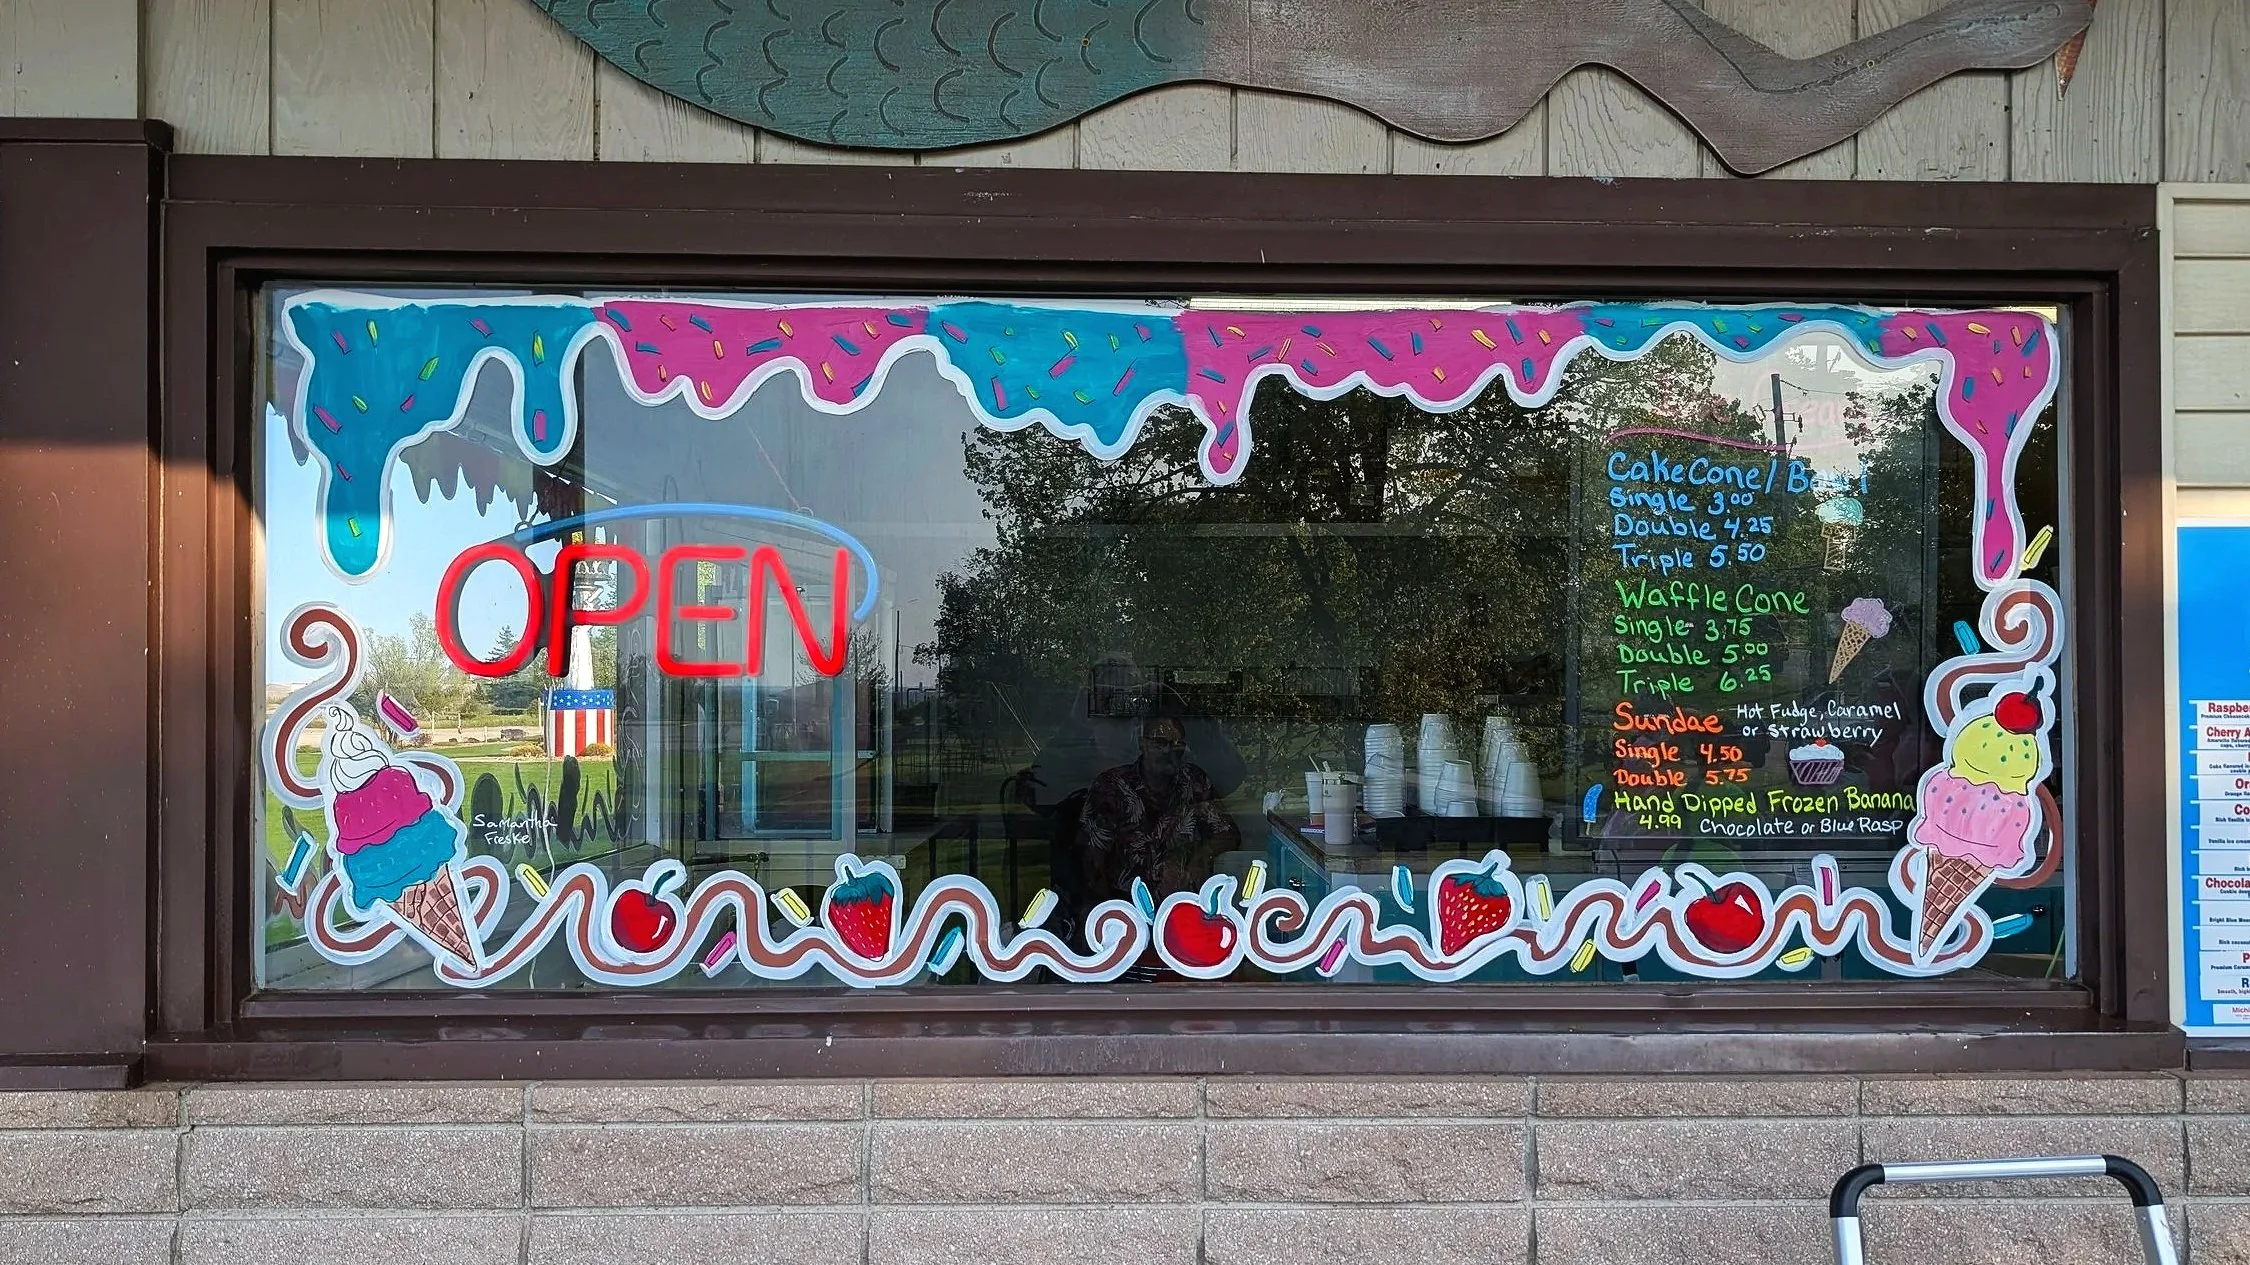 OPEN
Samantha
Freske
Ice Cream
Cake Cone / Bowl
Single 3.00
Double 4.25
Triple 5.50
Waffle Cone
Single 3.75
Double 5.00
Triple 6.25
Sundae Hot Fudge, Caramel
or Strawberry
Single 4.50
Double 5.75
Hand Dipped Frozen Banana
4.99 Chocolate or Blue Rasp
Raspbe
Premium Cheesecak
Cherry A
Or
Co
Chocola
P
R